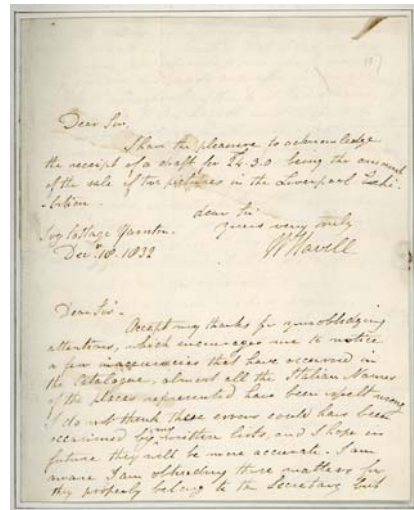 Dear Sir,
I have the pleasure to acknowledge
the receipt of a draft for 24.3.0 being the amount
of the sale of two pictures in the Liverpool Exhi-
bition.
dear Sir
yours very truly
W Havell
Ivy Cottage Yarnton.
Decr. 18. 1832
Dear Sir.
Accept my thanks for your obliging
attentions, which encourages me to notice
a few inaccuracies that have occurred in
the Catalogue, almost all the Italian Names
of the places represented have been spelt wrong
I do not think these errors could have been
occasioned by my written lists, and I hope in
future they will be more accurate. I am
aware I am obtruding these matters for
they properly belong to the Secretary but